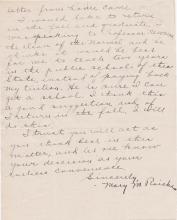 letter from Sadie came.
I would like to return
in the fall and graduate. I
was speaking to Professor
the Dean of the Normal and he
said it would be best
for me to teach two years
in the public schools of this
State, instead of paying back
my tuition. He is sure I can
get a school. I think this
a good suggestion and if
I return in the fall I will
do this.
I trust you will act as
you think best in this
matter, and let me know
your decision at your
earliest convenience.
Sincerely,
Mary M